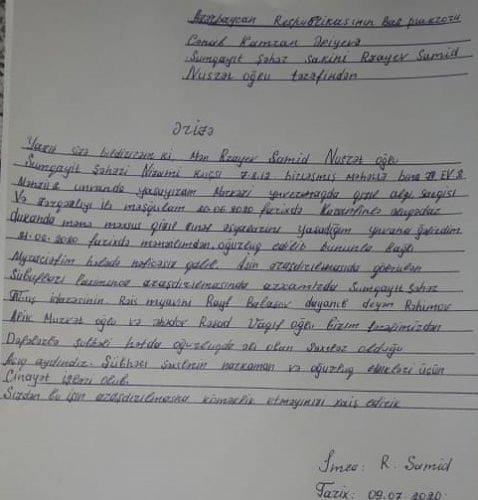 Azərbaycan Respublikasının Baş prokroru
Cənab Kamran Əliyevə
Sumqayıt şəhər sakini Rzayev Samid
Nusrət oğlu tərəfindən
Ərizə
Yazıb sizə bildirirəm ki, Mən Rzayev Samid Nusrət oğlu
Sumqayıt şəhəri Nizami küçəsi 7.8.12 birləşmiş məhəllə bina EV.8.
Mənzil 8 unvanda yaşayıram Mərkəzi qızıl alqı, satqısı
Və zərgərliyi ilə məşğulam 20.06 2020 tarixdə Karantinlə əlaqədar
dukanda mənə məxsus qızıl əşyalarını Yaşadığım yuvana gətirdim.
21.06.2020 tarixdə mənzilimdən oğurluq edilib bununla Bağlı
Myraciətim hələdə nəticəsiz qalıb. İşin araşdırılmasında görülən
Sübutları araşdırılmasında arxamızda Sumqayıt Şəhər
Polis idarəsinin Rəis myavini Rauf Balasov dayanıb deyən Rəhimov
Alik oğlu və Rəşad Vaqif oğlu Bizim tərəfimizdən
Dəfələrlə şübhəli hətda oğurluqda əli olan şəxslər olduğu
Açıq aydındır. Şübhəli şəxslərin narkoman və oğurluq etdikləri üçün
Cinayət işləri olub.
Sizdən bu işin araşdırılmasına köməklik etməyinizi xaiş edirik
İmza: R. Samid
Tarix: 09.07 2020